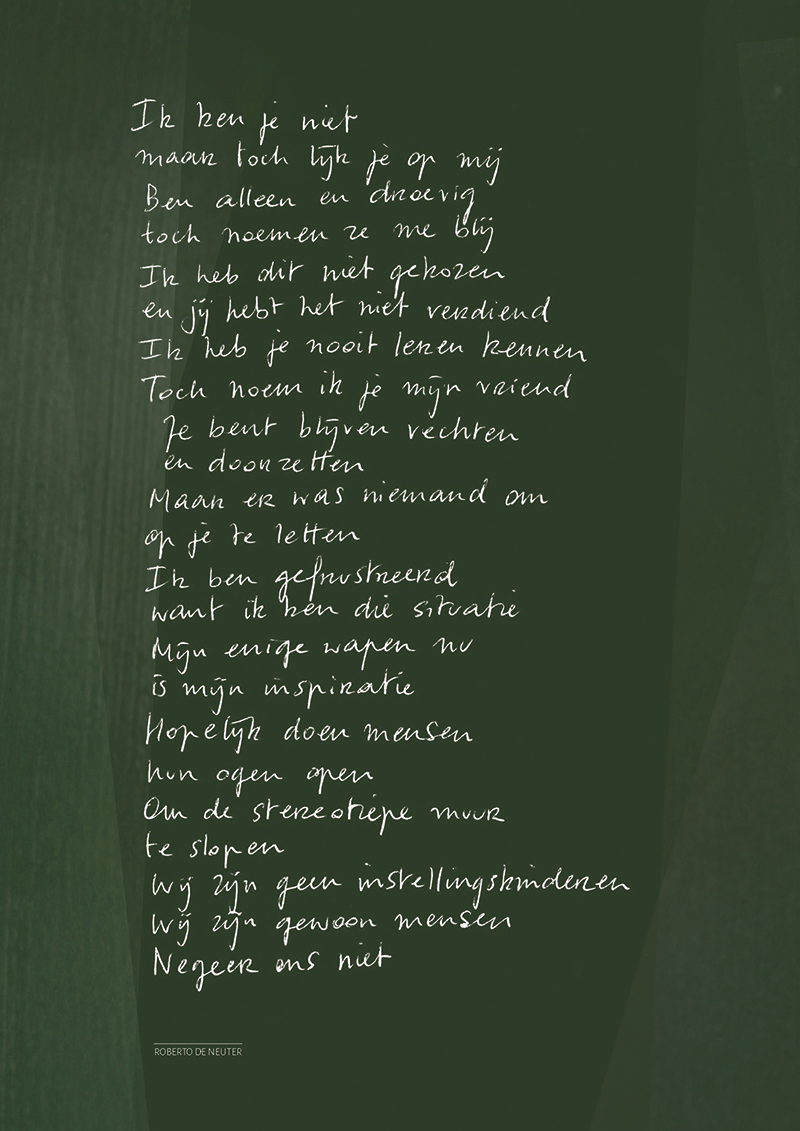 Ik ken je niet
maar toch lijk je op mij
Ben alleen en droevig
toch noemen ze me blij
Ik heb dit niet gekozen
en jij hebt het niet verdiend
Ik heb je nooit leren kennen
Toch noem ik je mijn vriend
Je bent blijven vechten
en doorzetten
Maar er was niemand om
op je te letten
Ik ben gefrustreerd
want ik ken die situatie
Mijn enige wapen nu
is mijn inspiratie
Hopelijk doen mensen
hun ogen open
Om de stereotiepe muur
te slopen
Wij zijn geen instellingskinderen
Wij zijn gewoon mensen
Negeer ons niet
ROBERTO DE NEUTER